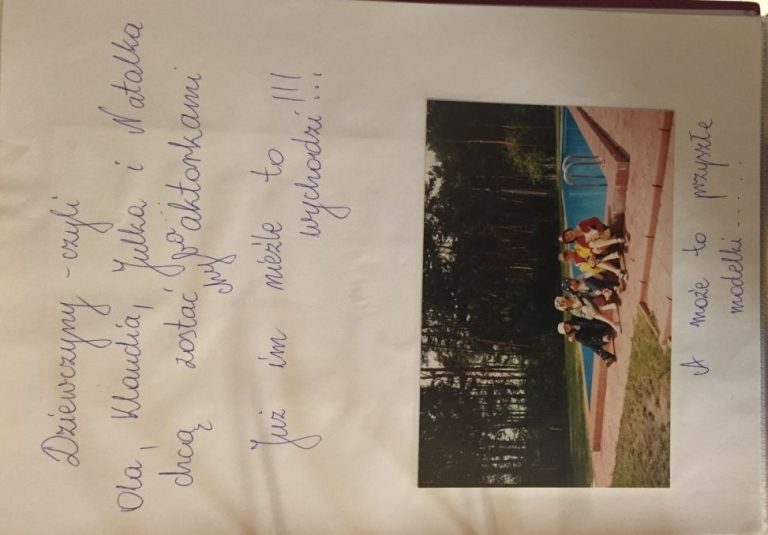 Dziewczyny - czyli
Ola, Klaudia, Julka i Natalka
chcą zostać aktorkami
Już im nieźle to
wychodzi!!!
A może to przyszłe
modelki.....